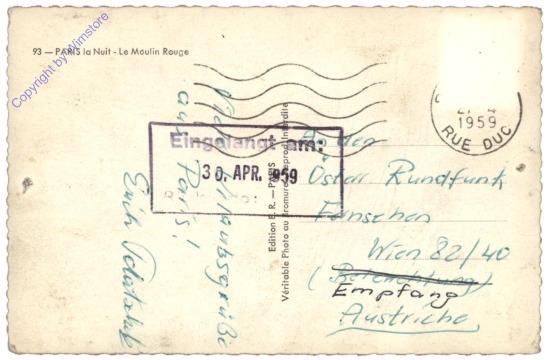 93 — PARIS la Nuit - Le Moulin Rouge
Copyright by Wimstore
21 - 4
1959
RUE DUC
Eingelangt am:
30. APR. 1959
Viele Urlaubsgrüße
aus Paris!
Erich
Edition E. R. — PARIS
Véritable Photo au Bromure - Reprod. Interdite
An den
Östar. Rundfunk
Fernsehen
Wien 82/40
Empfang
Austriche